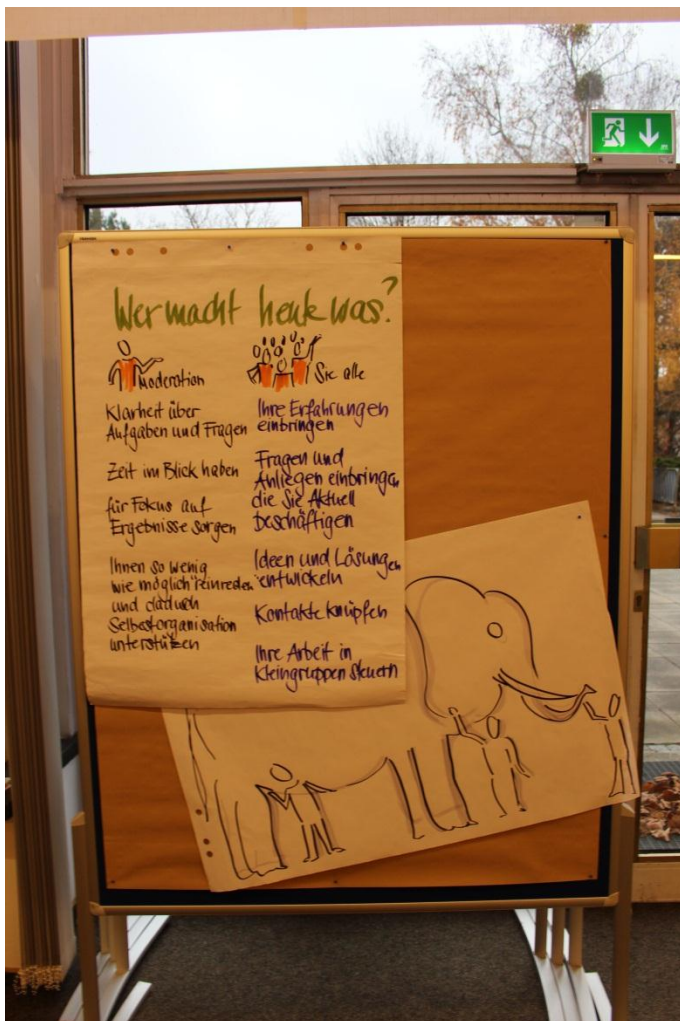 Wer macht heute was?
Moderation
Klarheit über
Aufgaben und Fragen
Zeit im Blick haben
für Fokus auf
Ergebnisse sorgen
Ihnen so wenig
wie möglich "reinreden"
und dadurch
Selbstorganisation
unterstützen
Sie alle
Ihre Erfahrungen
einbringen
Fragen und
Anliegen einbringen,
die Sie Aktuell
beschäftigen
Ideen und Lösungen
entwickeln
Kontakte knüpfen
Ihre Arbeit in
Kleingruppen steuern